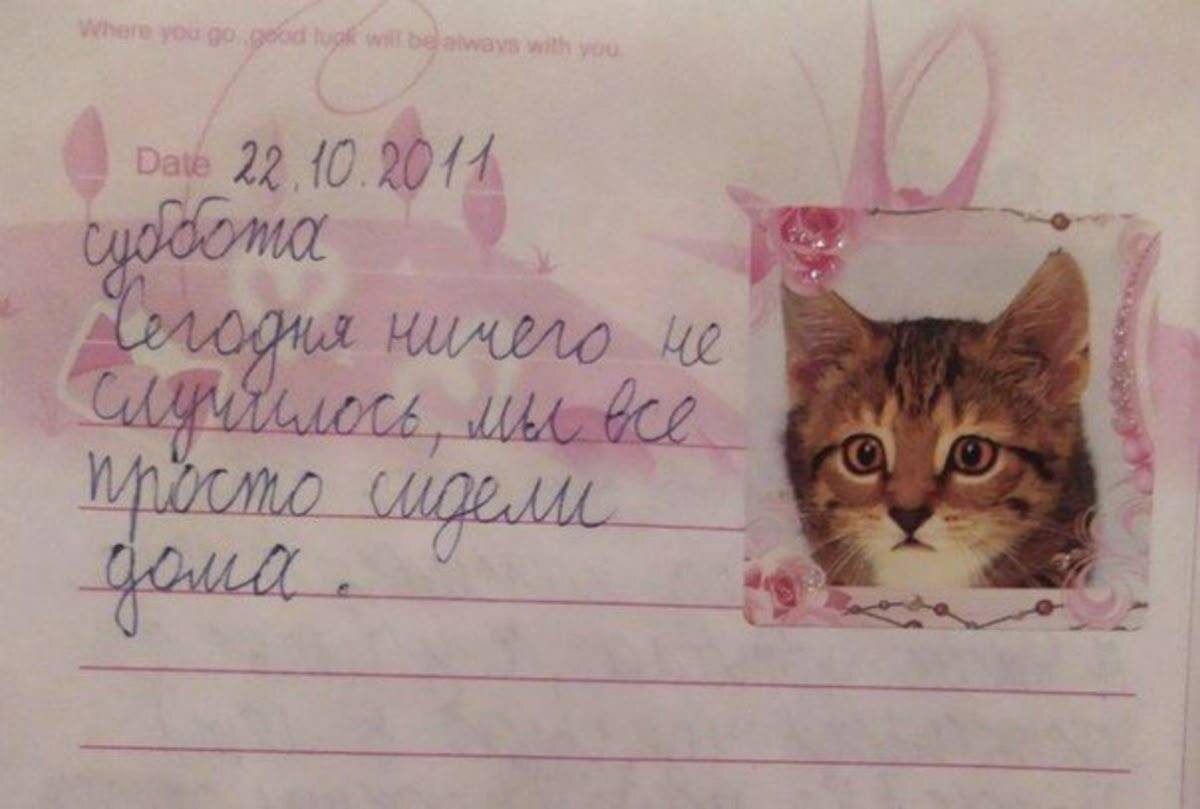 Where you go ,good luck will be always with you.
Date 22.10.2011
суббота
Сегодня ничего не
случилось, мы все
просто сидели
дома.